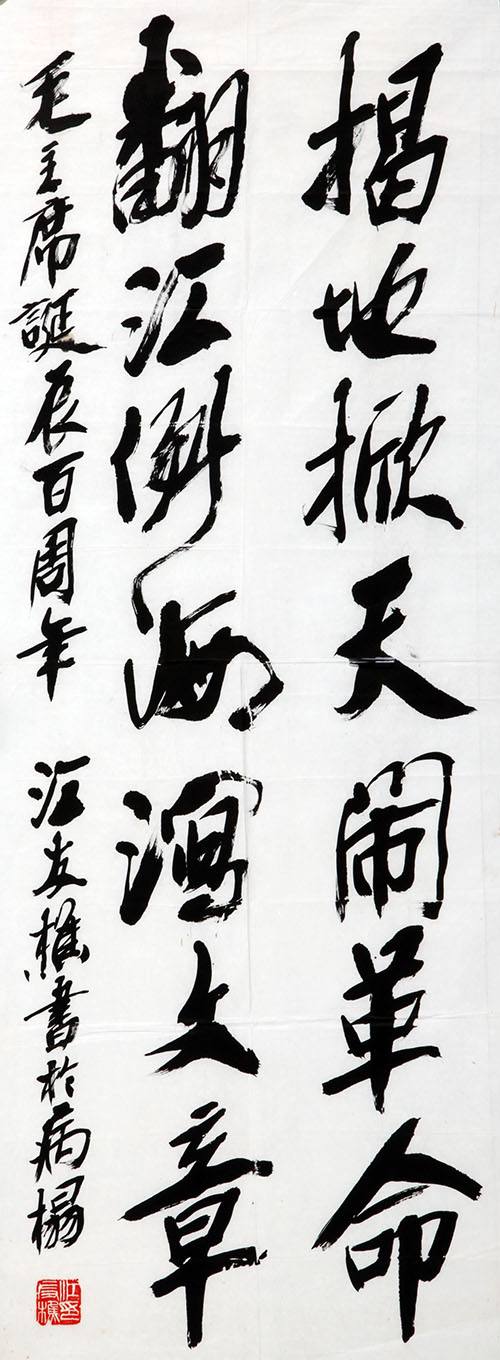 揭地掀天闹革命
翻江倒海演文章
毛主席誕辰百周年 江友樵書於病榻
江友樵印